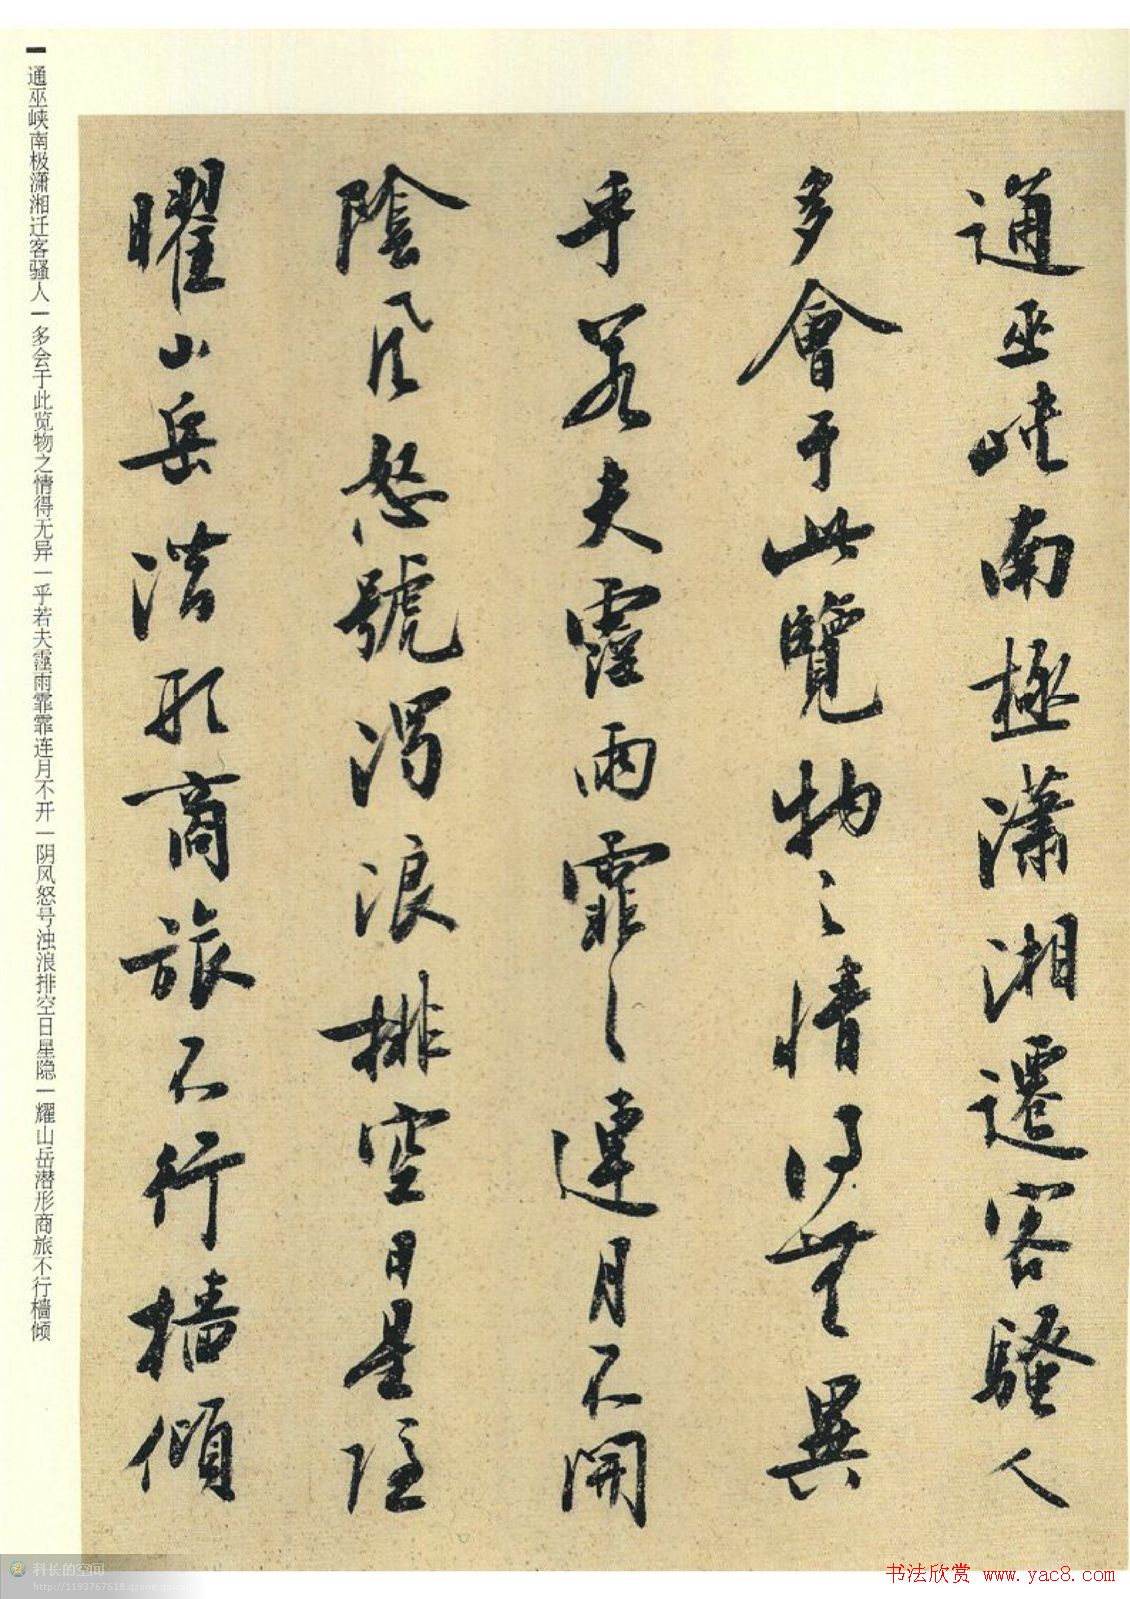 通巫峽南極瀟湘遷客騷人
多會于此覽物之情得無異
乎若夫霪雨霏〻連月不開
陰風怒號濁浪排空日星隱
曜山岳潛形商旅不行檣傾
通巫峡南极潇湘迁客骚人|多会于此览物之情得无异|乎若夫霪雨霏霏连月不开|阴风怒号浊浪排空日星隐|耀山岳潜形商旅不行檣倾
科长的空间
书法欣赏 www.yac8.com